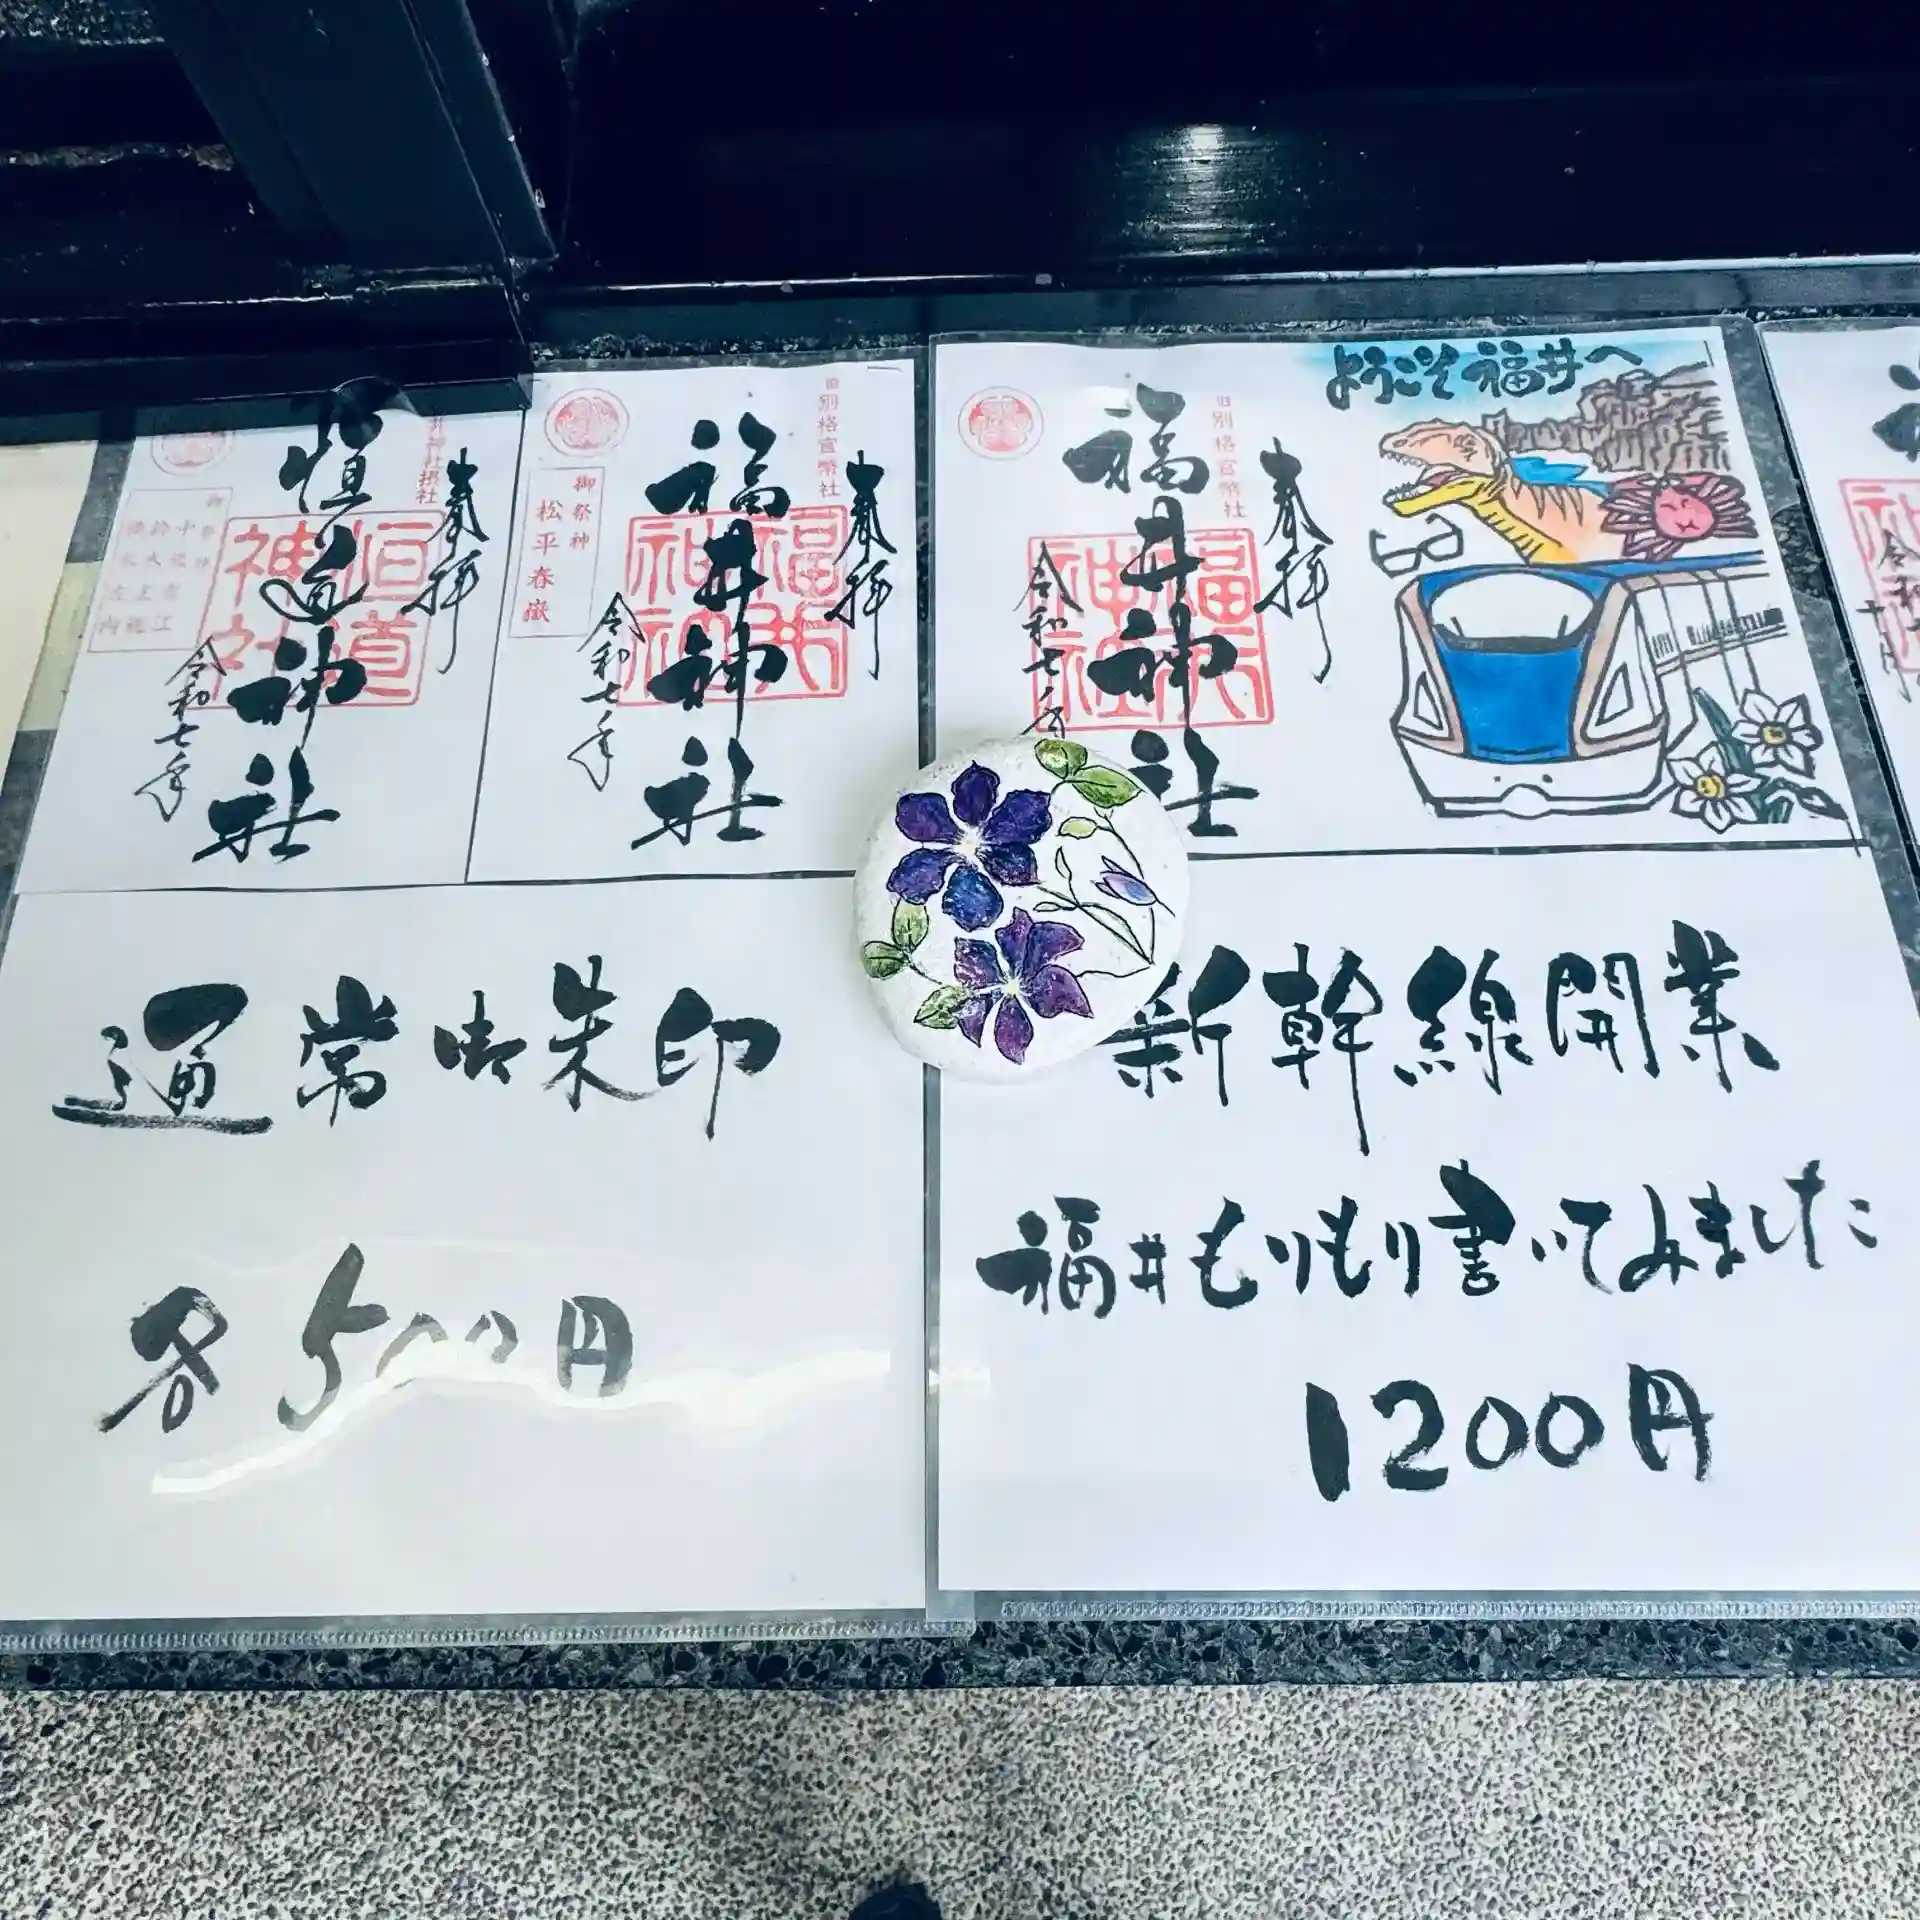 奉拝
恒道神社
令和七年
井神社摂社
恒道
神社
旧別格官幣社
奉拝
福井神社
御祭神
松平春嶽
令和七年
福井
神社
ようこそ福井へ
旧別格官幣社
奉拝
福井神社
令和七年
福井
神社
通常御朱印
各500円
新幹線開業
福井もりもり書いてみました
1200円